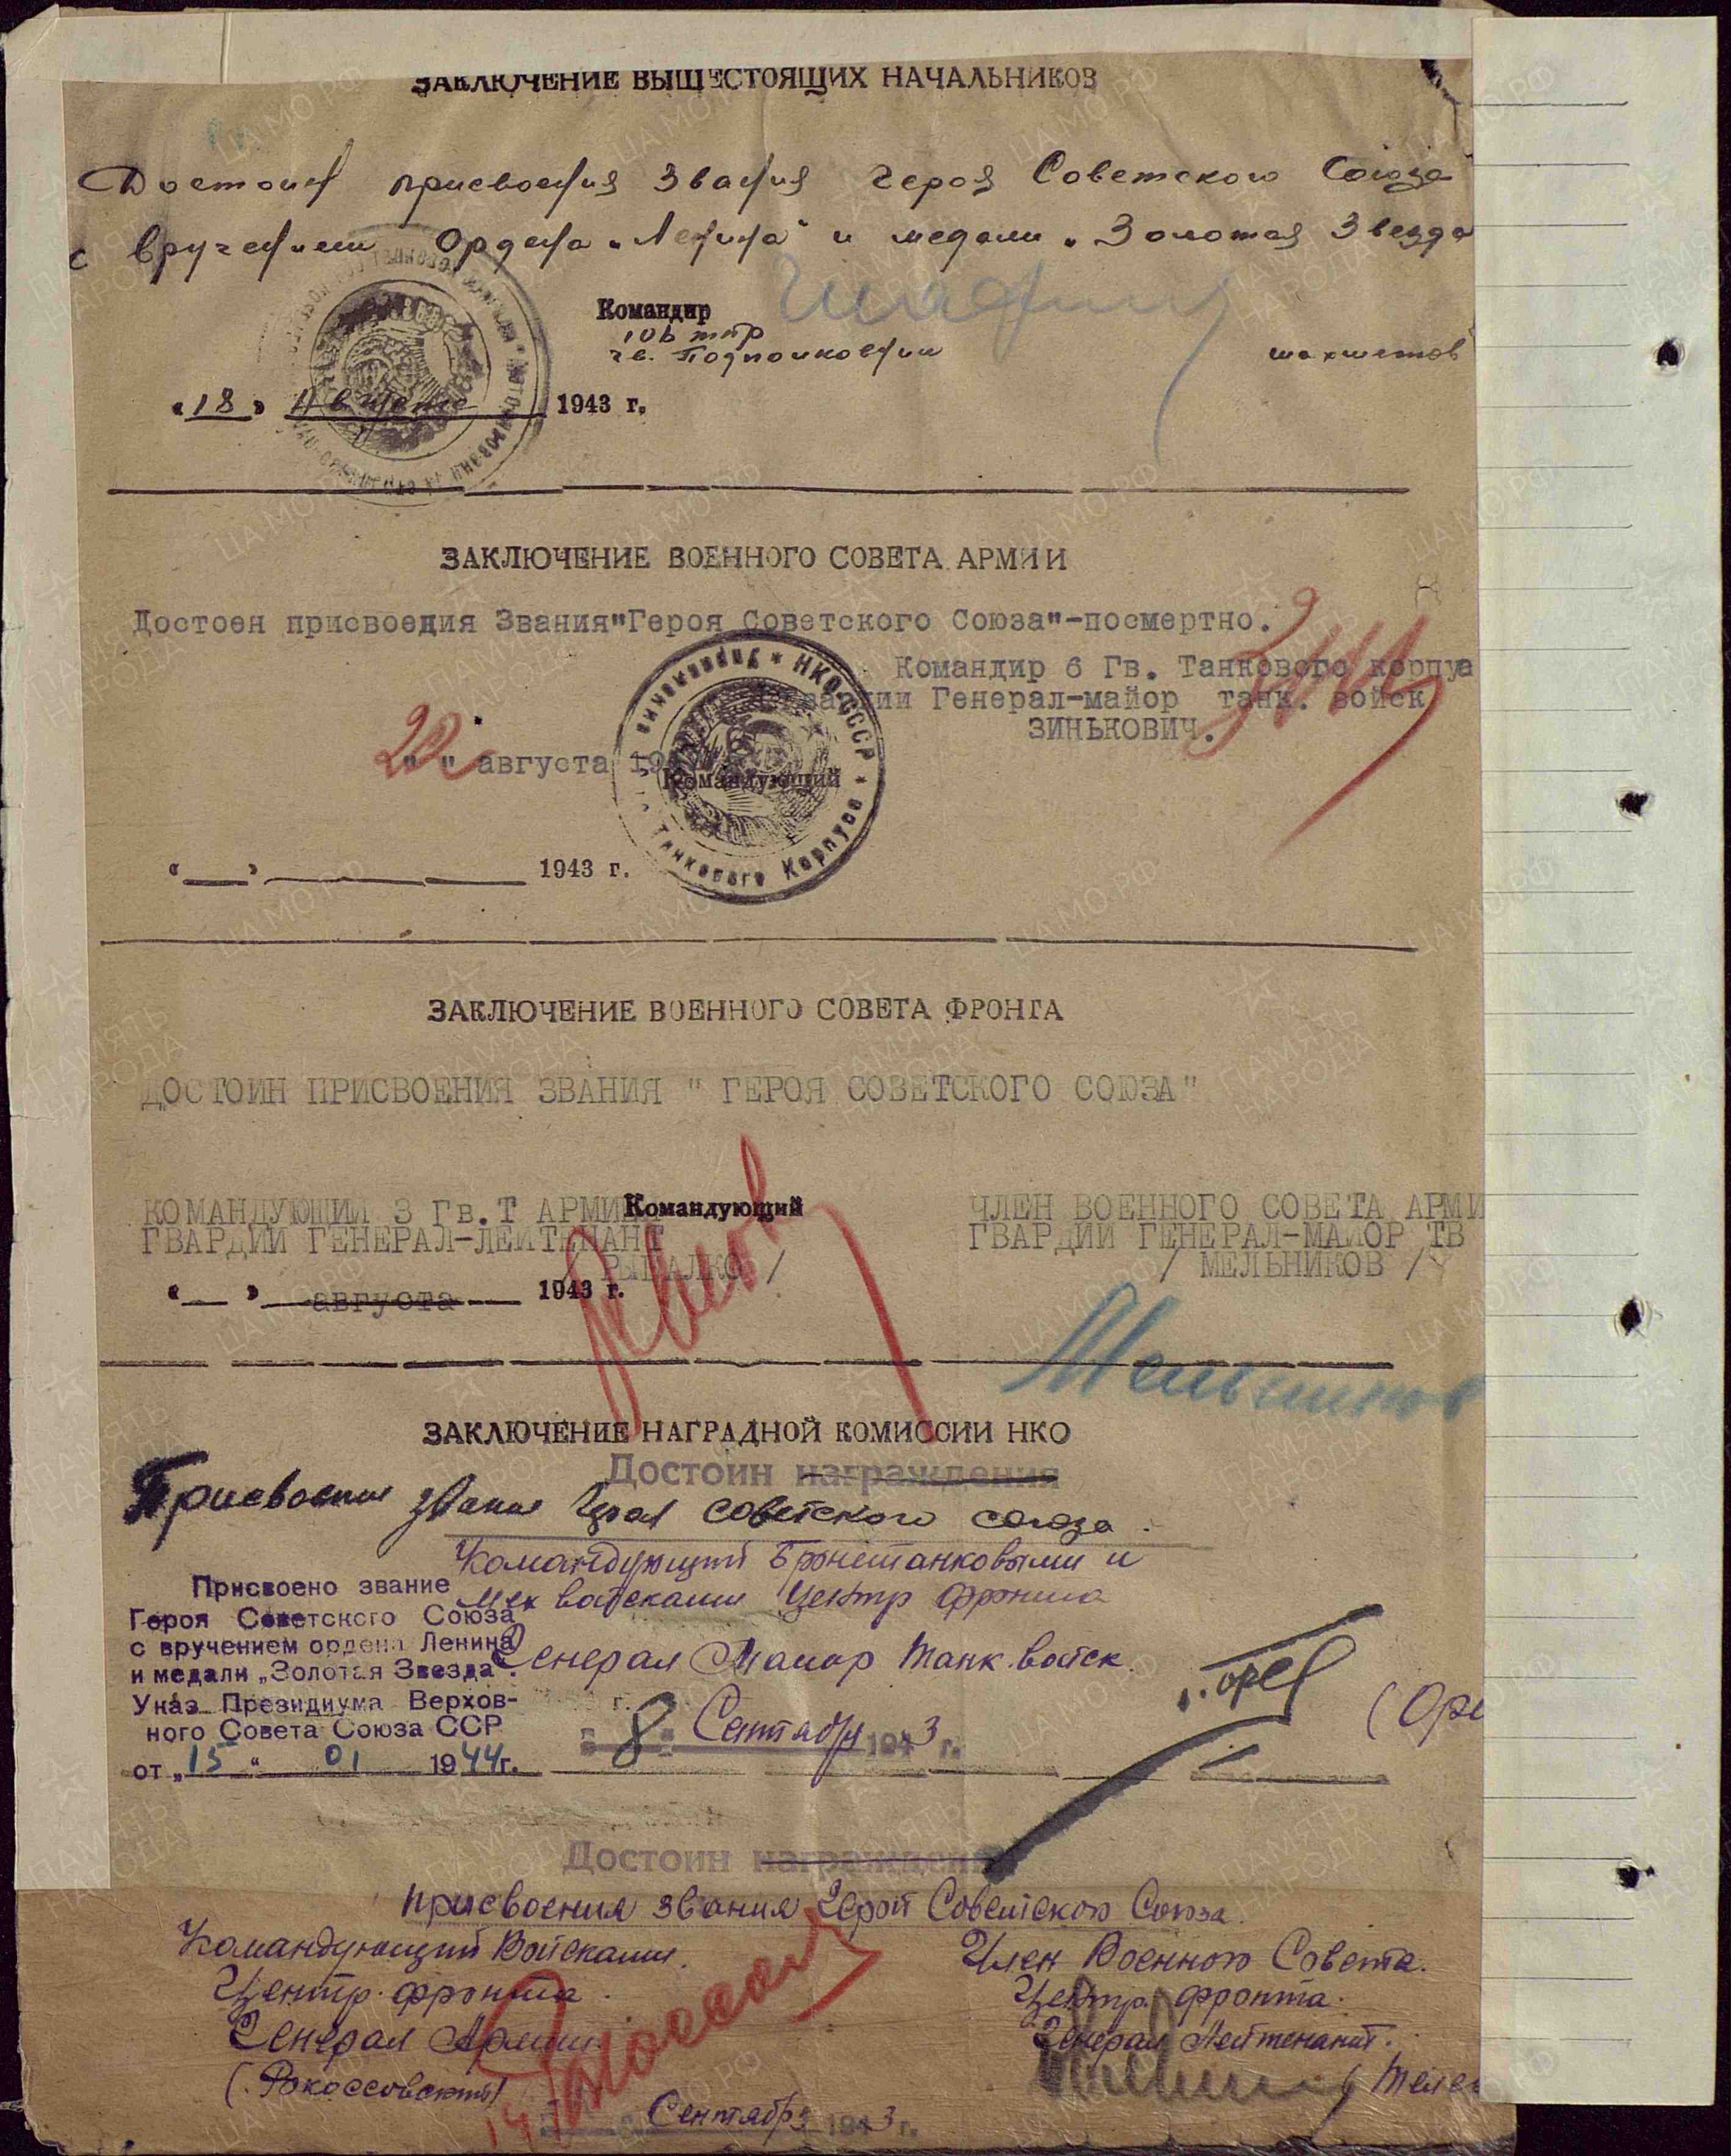 ЗАКЛЮЧЕНИЕ ВЫШЕСТОЯЩИХ НАЧАЛЬНИКОВ
Достоин присвоения Звания Героя Советского Союза
с вручением Ордена „Ленина" и медали „Золотая Звезда
Командир
106 тбр
гв. Подполковник
шахметов
„18" Августа 1943 г.
ЗАКЛЮЧЕНИЕ ВОЕННОГО СОВЕТА АРМИИ
Достоен присвоедия Звания"Героя Советского Союза"-посмертно.
Командир 6 Гв. Танкового корпуа
Генерал-майор танк. войск
ЗИНЬКОВИЧ.
20 " " августа 19
НКО-СССР
Танкового Корпуса
Командующий
" " 1943 г.
ЗАКЛЮЧЕНИЕ ВОЕННОГО СОВЕТА ФРОНТА
ДОСТОИН ПРИСВОЕНИЯ ЗВАНИЯ " ГЕРОЯ СОВЕТСКОГО СОЮЗА"
КОМАНДУЮЩИЙ 3 Гв.Т АРМИЕЙ Командующий
ГВАРДИИ ГЕНЕРАЛ-ЛЕЙТЕНАНТ
/ РЫБАЛКО /
ЧЛЕН ВОЕННОГО СОВЕТА АРМИ
ГВАРДИИ ГЕНЕРАЛ-МАЙОР ТВ
/ МЕЛЬНИКОВ /
" " августа 1943 г.
Мельников
ЗАКЛЮЧЕНИЕ НАГРАДНОЙ КОМИССИИ НКО
Достоин награждения
Присвоения звания Героя Советского союза.
Командующий Бронетанковыми и
мех войсками Центр фронта
Генерал Майор танк. войск.
(Оре
г.
„8" Сентября 1943 г.
Присвоено звание
Героя Советского Союза
с вручением ордена Ленина
и медали „Золотая Звезда".
Указ Президиума Верхов-
ного Совета Союза ССР
от „15" 01 1944г.
Достоин награждения
присвоения звания Герой Советского Союза.
Командующий Войсками
Центр. фронта.
Генерал Армии.
(Рокоссовский)
Член Военного Совета.
Центр. фронта.
Генерал Лейтенант.
Телег
14 Сентября 1943 г.
ПАМЯТЬ НАРОДА
ЦАМО.РФ